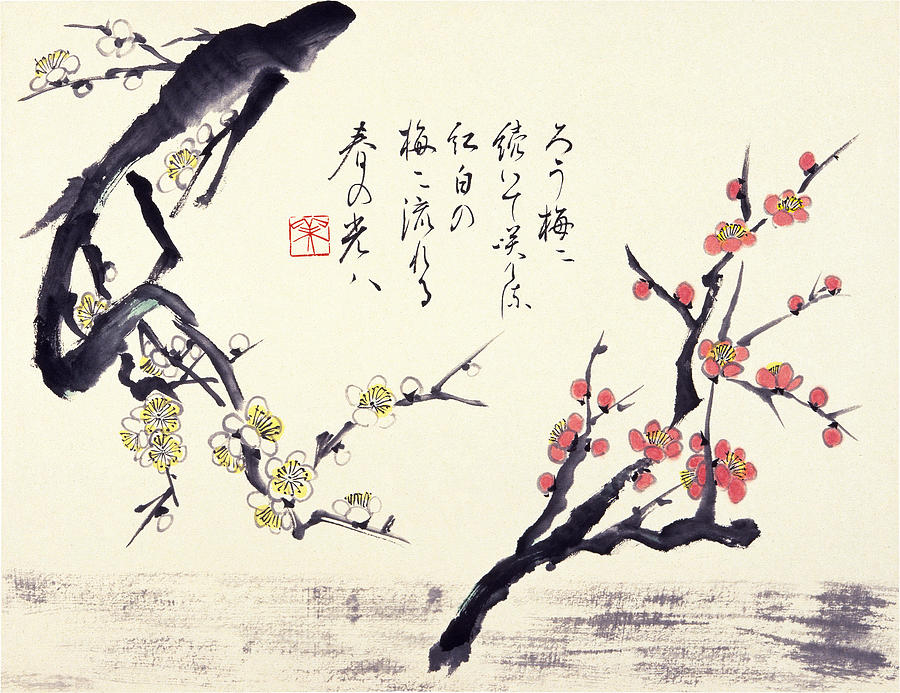 ろう梅に
続いて咲くは
紅白の
梅に流れる
春の光八